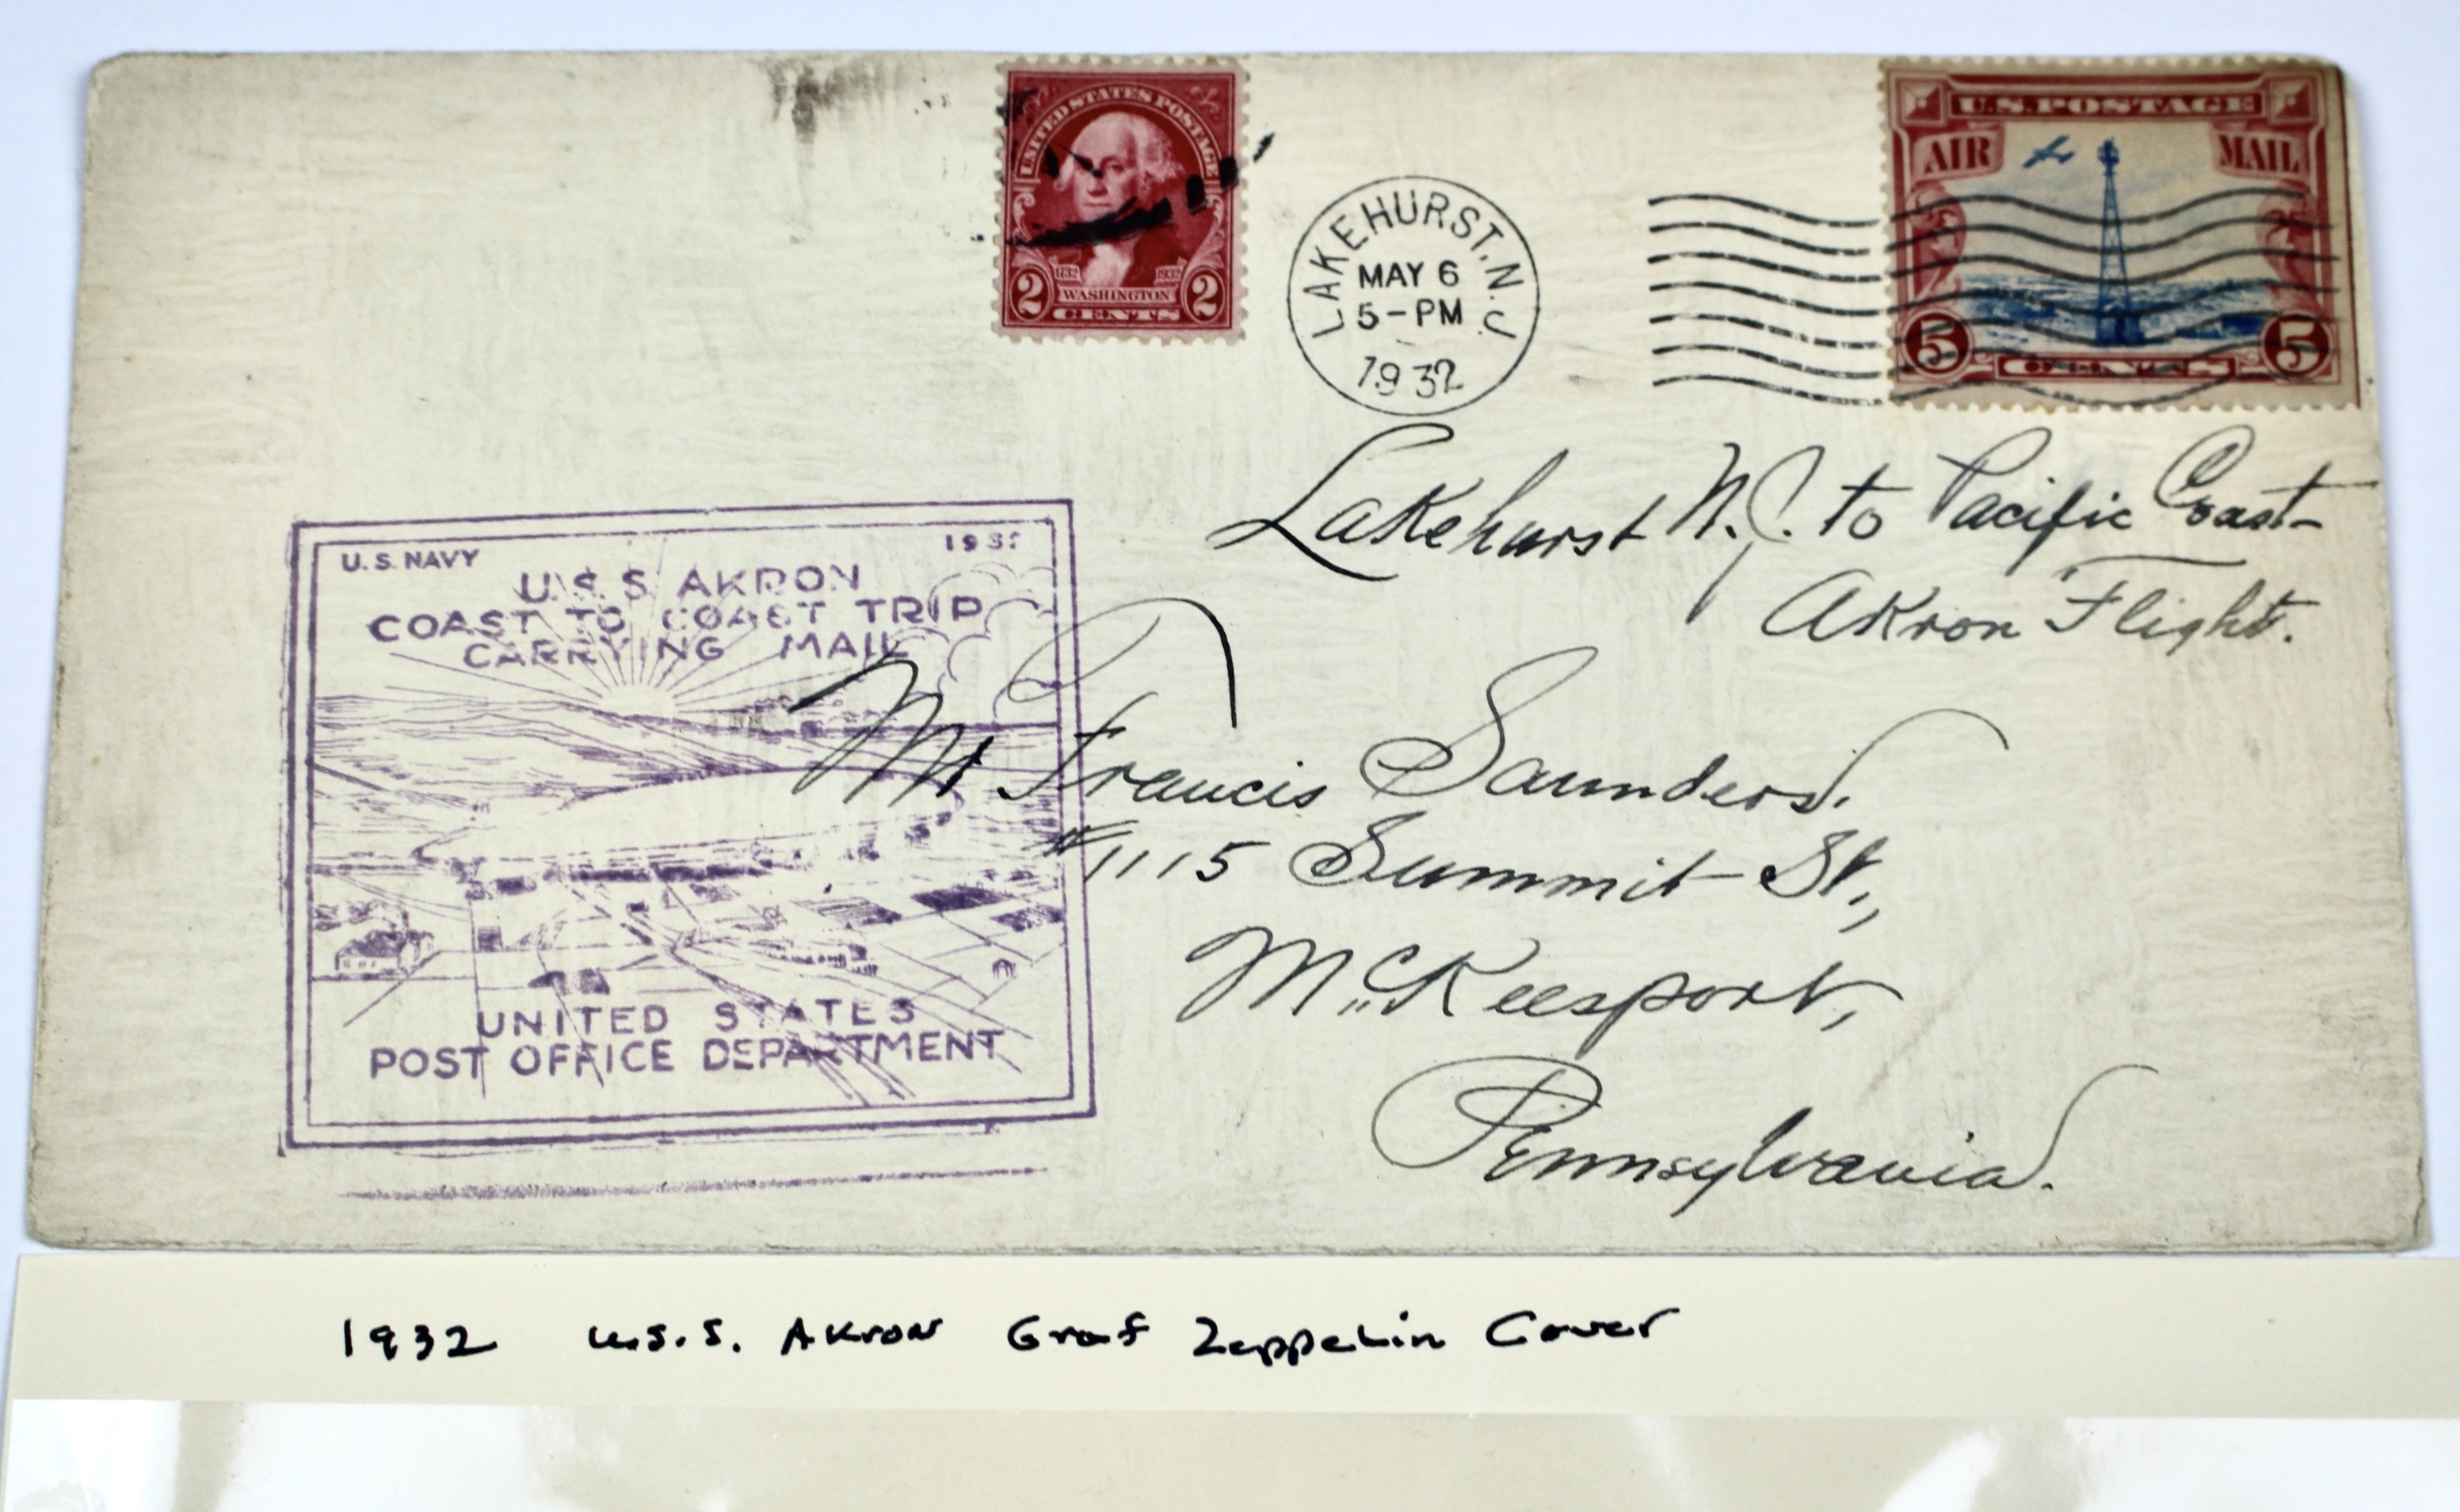 UNITED STATES POSTAGE
1732 1932
2 WASHINGTON 2
CENTS
LAKEHURST. N.J.
MAY 6
5-PM
1932
U.S. POSTAGE
AIR MAIL
5 CENTS 5
Lakehurst N.J. to Pacific Coast-
Akron Flight.
U.S. NAVY 1932
U.S.S. AKRON
COAST TO COAST TRIP
CARRYING MAIL
UNITED STATES
POST OFFICE DEPARTMENT
Mr Francis Saunders.
#1115 Summit St.,
McKeesport,
Pennsylvania.
1932 U.S.S. Akron Graf Zeppelin Cover